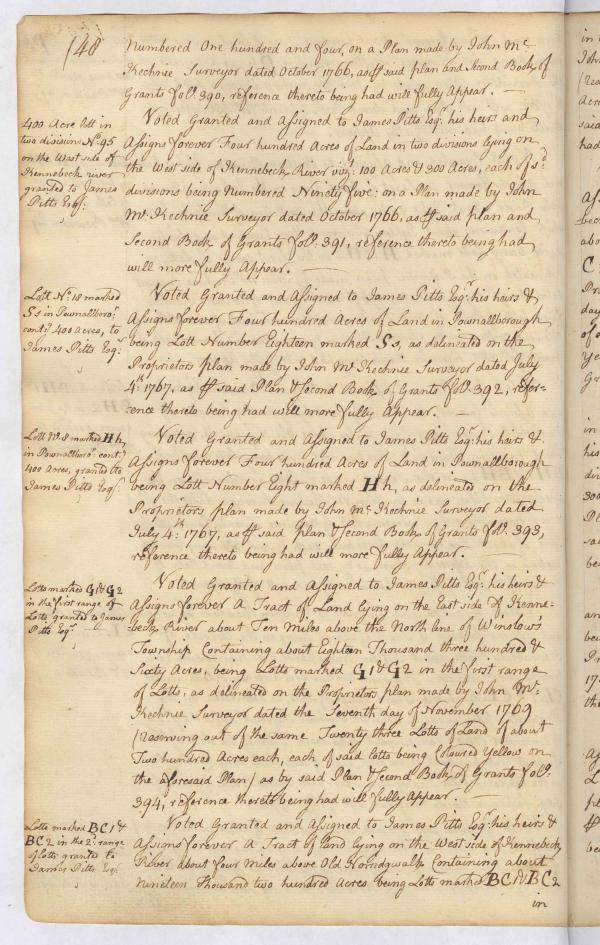 148
numbered One hundred and four, on a Plan made by John Mc.
Kechnie Surveyor dated October 1766, as ⅌ said plan and Second Book of
Grants folo. 390, reference thereto being had will fully Appear. —
400 Acre lott in
two divisions No. 95
on the West side of
Kennebeck river
granted to James
Pitts Esqr.
Voted Granted and Assigned to James Pitts Esqr. his heirs and
Assigns forever Four hundred Acres of Land in two divisions lying on
the West side of Kennebeck River vizt: 100 Acres & 300 Acres, each of sd.
divisions being Numbered Ninety five: on a Plan made by John
Mc. Kechnie Surveyor dated October 1766, as ⅌ said plan and
Second Book of Grants folo. 391, reference thereto being had
will more fully Appear. —
Lott No. 18 marked
Ss in Pownallboro.
contg. 400 Acres, to
James Pitts Esqr.
Voted Granted and Assigned to James Pitts Esqr. his heirs &
Assigns forever Four hundred Acres of Land in Pownallborough
being Lott Number Eighteen marked Ss, as delineated on the
Proprietors plan made by John Mc Kechnie Surveyor dated July
4th. 1767, as ⅌ said Plan & Second Book of Grants folo. 392, refer-
ence thereto being had will more fully Appear. —
Lott No. 8 marked Hh,
in Pownallboro. contg.
400 Acres, granted to
James Pitts Esqr.
Voted Granted and Assigned to James Pitts Esqr. his heirs &
Assigns forever Four hundred Acres of Land in Pownallborough
being Lott Number Eight marked Hh, as delineated on the
Proprietors plan made by John Mc. Kechnie Surveyor dated
July 4th. 1767, as ⅌ said plan & Second Book of Grants folo. 393,
reference thereto being had will more fully Appear. —
Lotts marked G1 & G2
in the first range of
Lotts granted to James
Pitts Esqr.
Voted Granted and Assigned to James Pitts Esqr. his heirs &
Assigns forever A Tract of Land lying on the East side of Kenne-
beck River about Ten Miles above the North line of Winslow
Township Containing about Eighteen Thousand three hundred &
Sixty Acres, being Lotts marked G1 & G2 in the first range
of Lotts, as delineated on the Proprietors plan made by John Mc.
Kechnie Surveyor dated the Seventh day of November 1769
(reserving out of the same Twenty three Lotts of Land of about
Two hundred Acres each, each of said lotts being Coloured Yellow on
the aforesaid Plan) as by said Plan & Second Book of Grants folo.
394, reference thereto being had will more fully Appear —
Lotts marked BC1 &
BC2 in the 2d. range
of lotts granted to
James Pitts Esqr.
Voted Granted and Assigned to James Pitts Esqr. his heirs &
Assigns forever A Tract of land lying on the West side of Kennebeck
River about four Miles above Old Norridgwalk Containing about
Nineteen Thousand two hundred Acres being Lotts marked BC1 & BC2
in